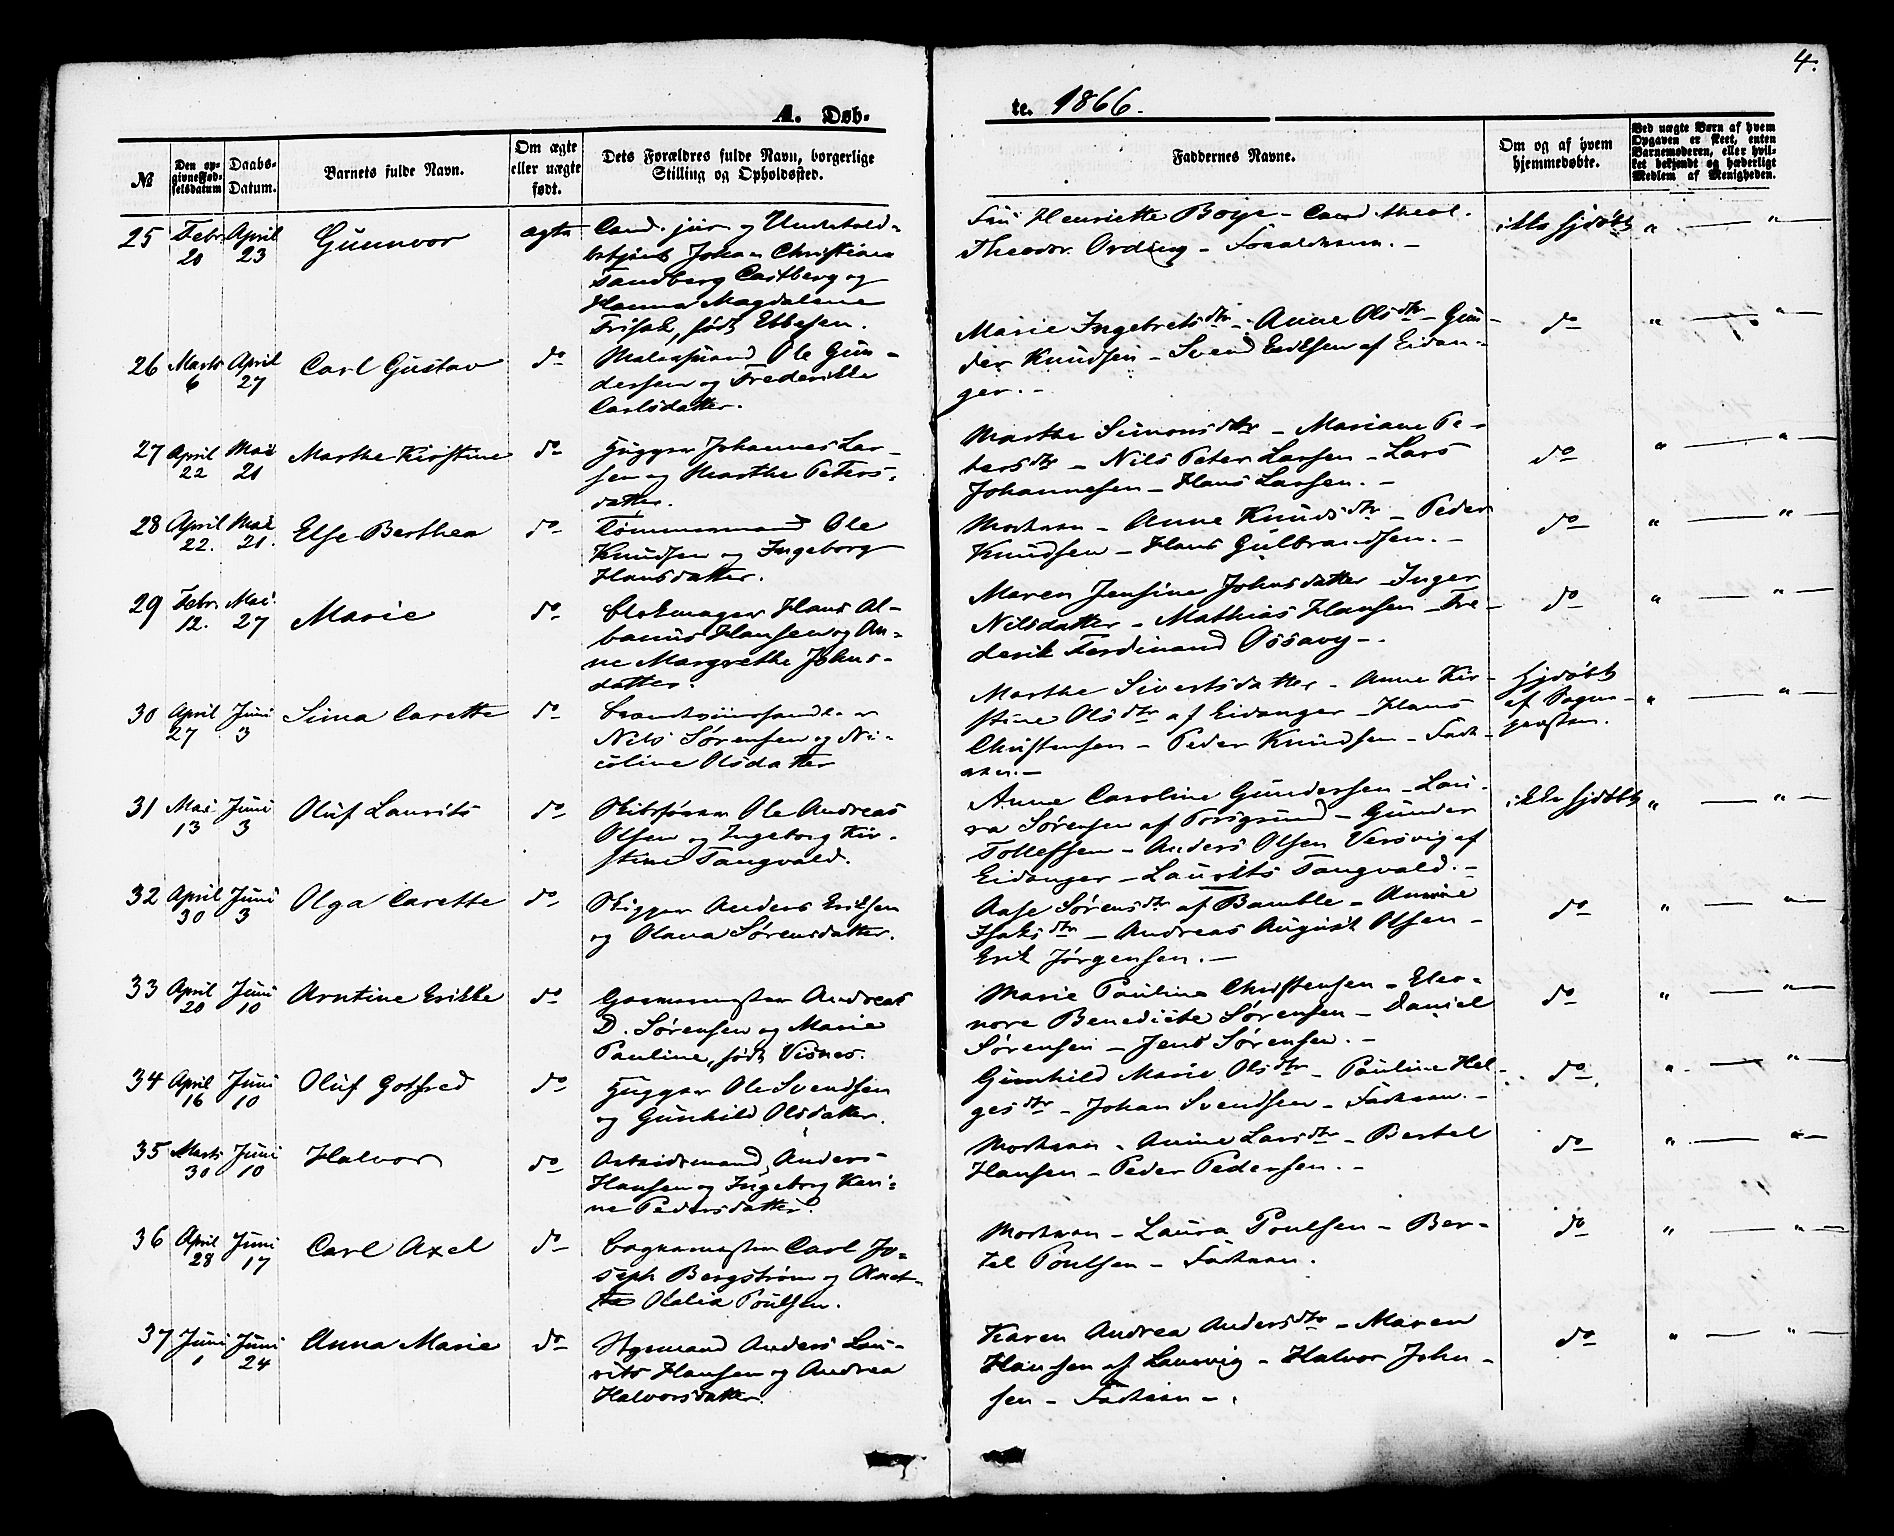 4.
A. Døb-
te. 1866.
№
Den op-
givne Fød-
selsdatum
Daabs-
Datum.
Barnets fulde Navn.
Om ægte
eller uægte
født.
Dets Forældres fulde Navn, borgerlige
Stilling og Opholdssted.
Faddernes Navne.
Om og af hvem
hjemmedøbte.
Ved uægte Børn af hvem
Opgaven er skeet, enten
Barnemoderen, eller hvil-
ket bekjendt og hæderligt
Medlem af Menigheden.
25 Febr 20 April 23 Gunnvor ægte
Cand. jur og
Johan Christian
Tandberg Castberg og
Hanna Magdalene
født Ebbesen.
Henriette Boye - Cand theol.
Theodor Ording - Forældrene. -
ikke hjdøbt " — " —
26 Marts 6 April 27 Carl Gustav do
Ole Gun-
dersen og Frederikke
Carlsdatter.
Marie Ingebretsdtr - Anne Olsdtr - Gun-
der Knudsen - Svend Eriksen af Eidan-
ger. -
do " — " —
27 April 22 Mai 21 Marthe Kirstine do
Hugger Johannes Lar-
sen og Marthe Peters-
datter.
Marthe Simonsdtr - Mariane Pe-
tersdtr - Nils Peter Larsen - Lars
Johannesen - Hans Larsen. -
do " — " —
28 April 22. Mai 21. Else Berthea do
Tømmermand Ole
Knudsen og Ingeborg
Hansdatter.
Moderen - Anne Knudsdtr - Peder
Knudsen - Hans Gulbrandsen. -
do " — " —
29 Febr. 12. Mai. 27 Marie do
Blokmager Hans Al-
banus Hansen og An-
ne Margrethe Johns-
datter.
Maren Jensine Johnsdatter - Inger
Nilsdatter - Mathias Hansen - Fre-
derik Ferdinand Ossavy -.
do " — " —
30 April 27 Juni 3 Sina Carette do
Brændeviinshandler
Nils Sørensen og Ni-
coline Olsdatter
Marthe Sivertsdatter - Anne Kir-
stine Olsdtr af Eidanger - Hans
Christensen - Peder Knudsen - Fad-
eren. -
hjdøbt
af Sogne-
presten.
" — " —
31 Mai 13 Juni 3 Oluf Laurits do
Skibsfører Ole Andreas
Olsen og Ingeborg Kir-
stine Tangvald.
Anne Caroline Gundersen - Lau-
ra Sørensen af Porsgrund - Gunder
Tollefsen - Anders Olsen Versvig af
Eidanger - Laurits Tangvald. -
ikke hjdøbt " — " —
32 April 30 Juni 3 Olga Carette do
Skipper Anders Eriksen
og Olava Sørensdatter.
Aase Sørensdtr af Bamble - Annine
Isaksdtr - Andreas August Olsen -
Erik Jørgensen. -
do " — " —
33 April 20 Juni 10 Arntine Erikke do
Andreas
D. Sørensen og Marie
Pauline, født Visnes.
Marie Pauline Christensen - Eleo-
nore Benedicte Sørensen - Daniel
Sørensen - Jens Sørensen. -
do " — " —
34 April 16 Juni 10 Oluf Gotfred do
Hugger Ole Svendsen
og Gunhild Olsdatter.
Gunhild Marie Olsdtr - Pauline Hel-
gesdtr - Johan Svendsen - Faderen. -
do " — " —
35 Marts 30 Juni 10 Halvor do
Arbeidsmand Anders
Hansen og Ingeborg Kari-
ne Pedersdatter.
Moderen - Anine Larsdtr - Bertel
Hansen - Peder Pedersen. -
do " — " —
36 April 28 Juni 17 Carl Axel do
Bagermester Carl Jo-
seph Bergstrøm og Anet-
te Olalia Poulsen.
Moderen - Laura Poulsen - Ber-
tel Poulsen - Faderen.
do " — " —
37 Juni 1 Juni 24 Anna Marie do
Styrmand Anders Lau-
rits Hansen og Andrea
Halvorsdatter.
Karen Andrea Andersdtr - Maren
Hansen af Laurvig - Halvor John-
sen - Faderen -.
do " — " —